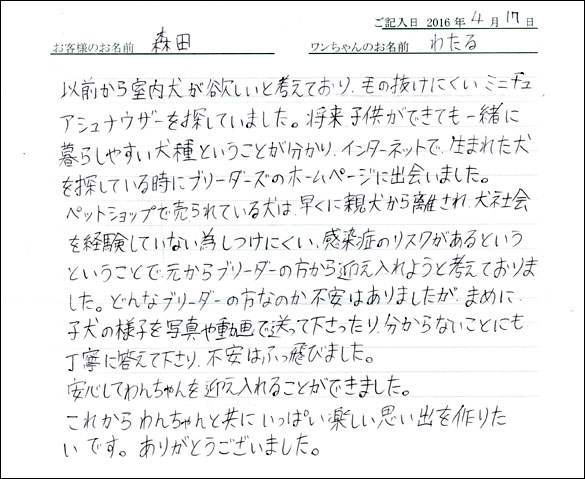 ご記入日 2016年4月17日
お客様のお名前 森田 ワンちゃんのお名前 わたる
以前から室内犬が欲しいと考えており、毛の抜けにくいミニチュ
アシュナウザーを探していました。将来子供ができても一緒に
暮らしやすい犬種ということが分かり、インターネットで、生まれた犬
を探している時にブリーダーズのホームページに出会いました。
ペットショップで売られている犬は、早くに親犬から離され、犬社会
を経験していない為しつけにくい、感染症のリスクがあるという
ということで、元からブリーダーの方から迎え入れようと考えておりま
した。どんなブリーダーの方なのか不安はありましたが、まめに、
子犬の様子を写真や動画で送って下さったり、分からないことにも
丁寧に答えて下さり、不安はふっ飛びました。
安心してわんちゃんを迎え入れることができました。
これからわんちゃんと共にいっぱい楽しい思い出を作りた
いです。ありがとうございました。